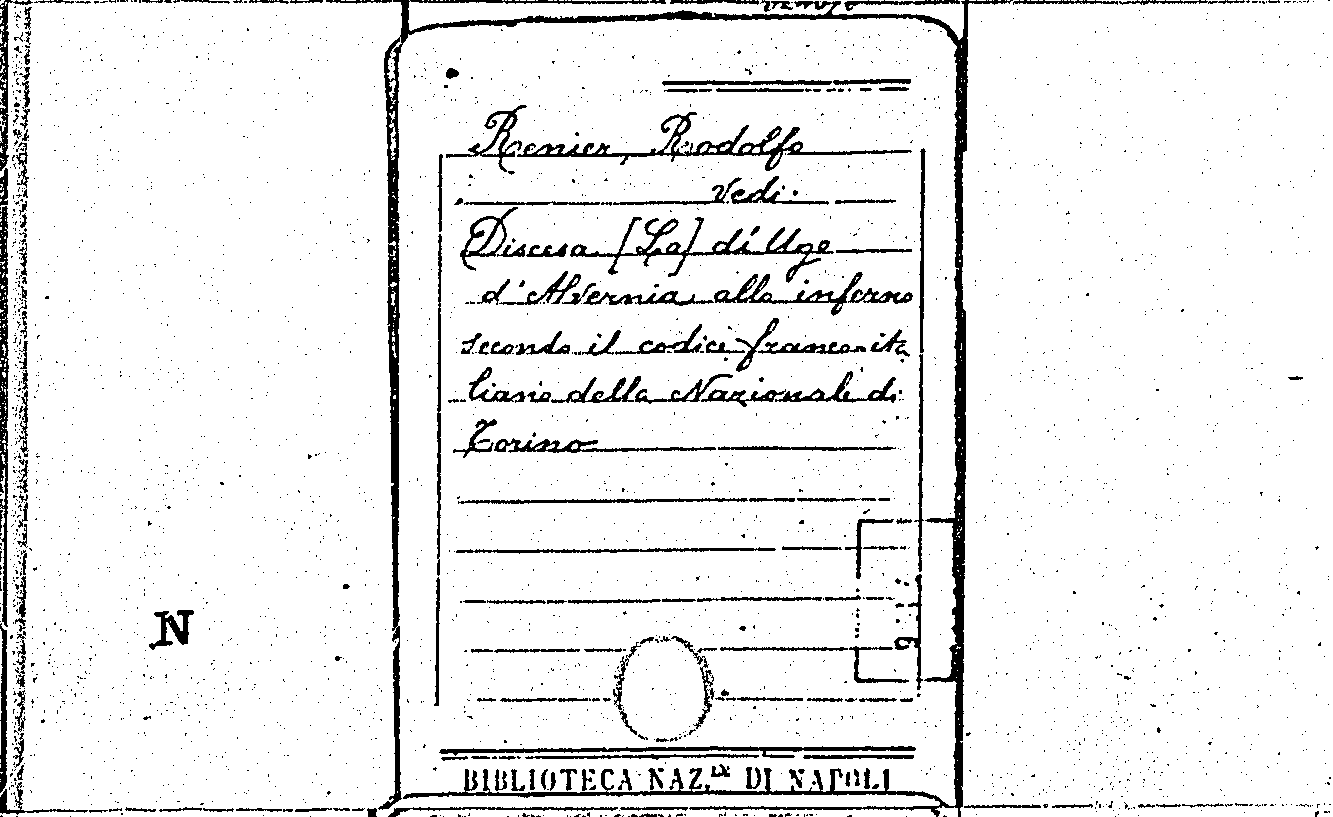 Renier, Rodolfo
Vedi.
Discesa [La] di Ugo
d'Alvernia allo inferno
secondo il codice franco-ita
liano della Nazionale di
Torino
N
BIBLIOTECA NAZ.LE DI NAPOLI